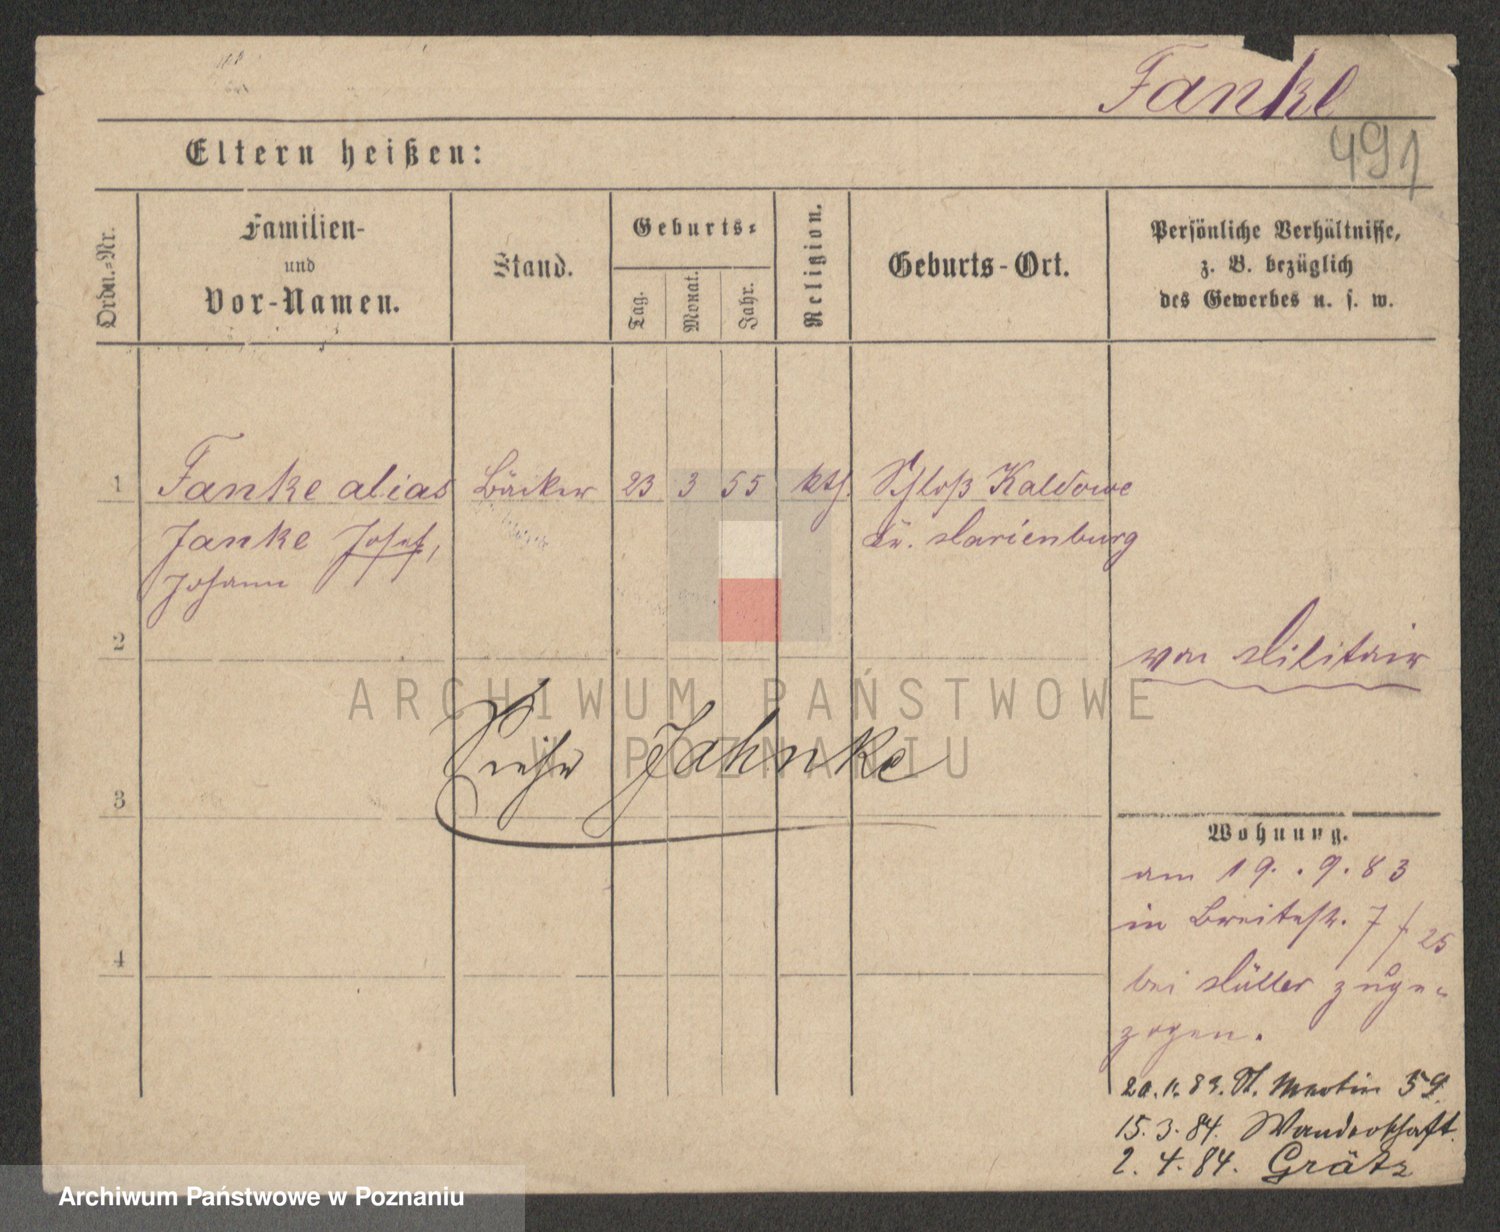 Fanke
491
Eltern heißen:
Ordn.=Nr.
Familien-
und
Vor-Namen.
Stand.
Geburts=
Tag.
Monat.
Jahr.
Religion.
Geburts-Ort.
Persönliche Verhältnisse,
z. B. bezüglich
des Gewerbes u. s. w.
1 Fanke alias Bäcker 23 3 55 kth. Schloß Kaldowe
Janke Josef, Kr. Marienburg
Johann
2
von Militair
ARCHIWUM PAŃSTWOWE
W POZNANIU
Siehe Jahnke
3
Wohnung.
am 19. . 9. 83
in Breitestr. 7/f. 25
bei Müller zuge-
zogen.
4
20. 11. 83. St. Martin 59.
15. 3. 84. Wanderschaft.
2. 4. 84. Grätz
Archiwum Państwowe w Poznaniu